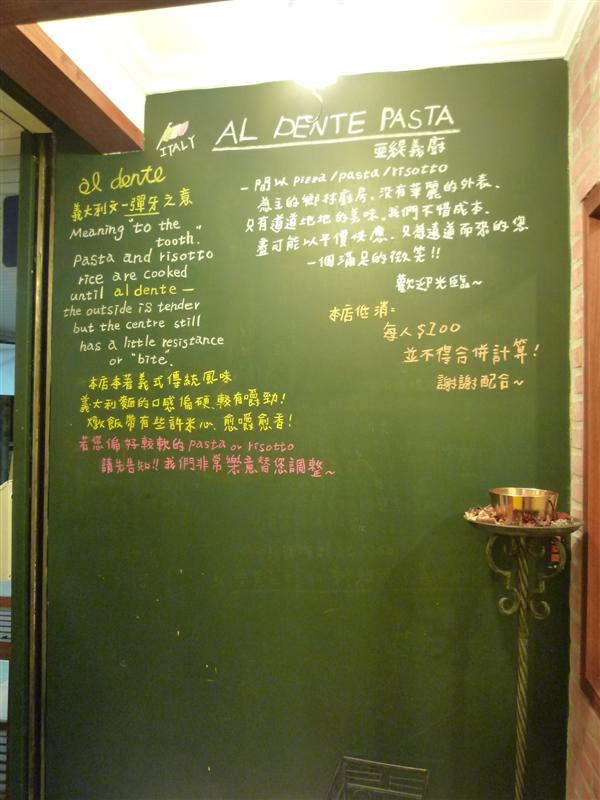 ITALY
AL DENTE PASTA
亞緹義廚
一間以pizza/pasta/risotto
為主的鄉村廚房。沒有華麗的外表、
只有道道地地的美味。我們不惜成本、
盡可能以平價供應.只為遠道而來的您
一個滿足的微笑!!
歡迎光臨~
本店低消=
每人$100
並不得合併計算!
謝謝配合~
al dente
義大利文-彈牙之意
Meaning "to the
tooth."
Pasta and risotto
rice are cooked
until al dente —
the outside is tender
but the centre still
has a little resistance
or "bite".
本店本著義式傳統風味
義大利麵的口感偏硬、較有嚼勁!
燉飯帶有些許米心、愈嚼愈香!
若您偏好較軟的pasta or risotto
請先告知!!我們非常樂意替您調整~